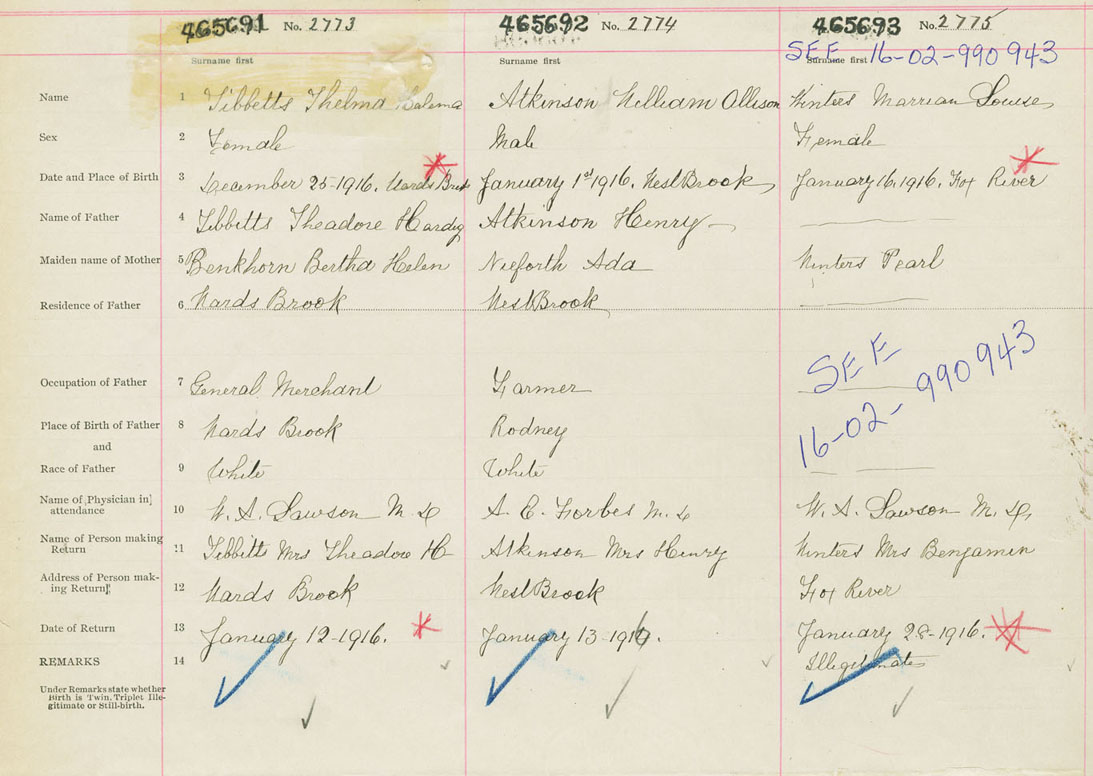 465691 No. 2773 465692 No. 2774 465693 No. 2775
SEE 16-02-990943
Surname first Surname first Surname first
Name 1 Tibbetts Thelma Atkinson William Allison Winters Marrian Louise
Sex 2 Female Male Female
Date and Place of Birth 3 December 25-1916. Wards Brook January 1st 1916. West Brook January 16. 1916. Fox River
Name of Father 4 Tibbetts Theadore Hardy Atkinson Henry
Maiden name of Mother 5 Benkhorn Bertha Helen Nieforth Ada Winters Pearl
Residence of Father 6 Wards Brook West Brook
SEE
16-02-990943
Occupation of Father 7 General Merchant Farmer
Place of Birth of Father 8 Wards Brook Rodney
and
Race of Father 9 White White
Name of Physician in
attendance 10 W. A. Lawson M. D A. E. Forbes M. D W. A. Lawson M. D.
Name of Person making
Return 11 Tibbetts Mrs Theadore H Atkinson Mrs Henry Winters Mrs Benjamin
Address of Person mak-
ing Return 12 Wards Brook West Brook Fox River
Date of Return 13 January 12-1916. January 13-1916. January 28-1916.
REMARKS 14 Illegitimate
Under Remarks state whether
Birth is Twin, Triplet Ille-
gitimate or Still-birth.